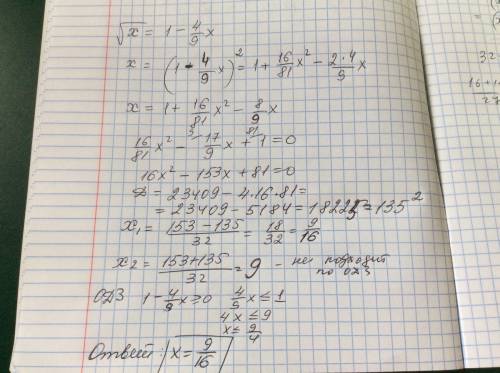 √x = 1 - 4/9 x
x = (1 - 4/9 x)² = 1 + 16/81 x² - 2·4/9 x
x = 1 + 16/81 x² - 8/9 x
16/81 x² - 17/9 x + 1 = 0
16x² - 153x + 81 = 0
D = 23409 - 4·16·81 =
= 23409 - 5184 = 18225 = 135²
x₁ = (153 - 135)/32 = 18/32 = 9/16
x₂ = (153 + 135)/32 = 9 - не подходит
по ОДЗ
ОДЗ 1 - 4/9 x ≥ 0 4/9 x ≤ 1
4x ≤ 9
x ≤ 9/4
Ответ: x = 9/16
32
16+
27